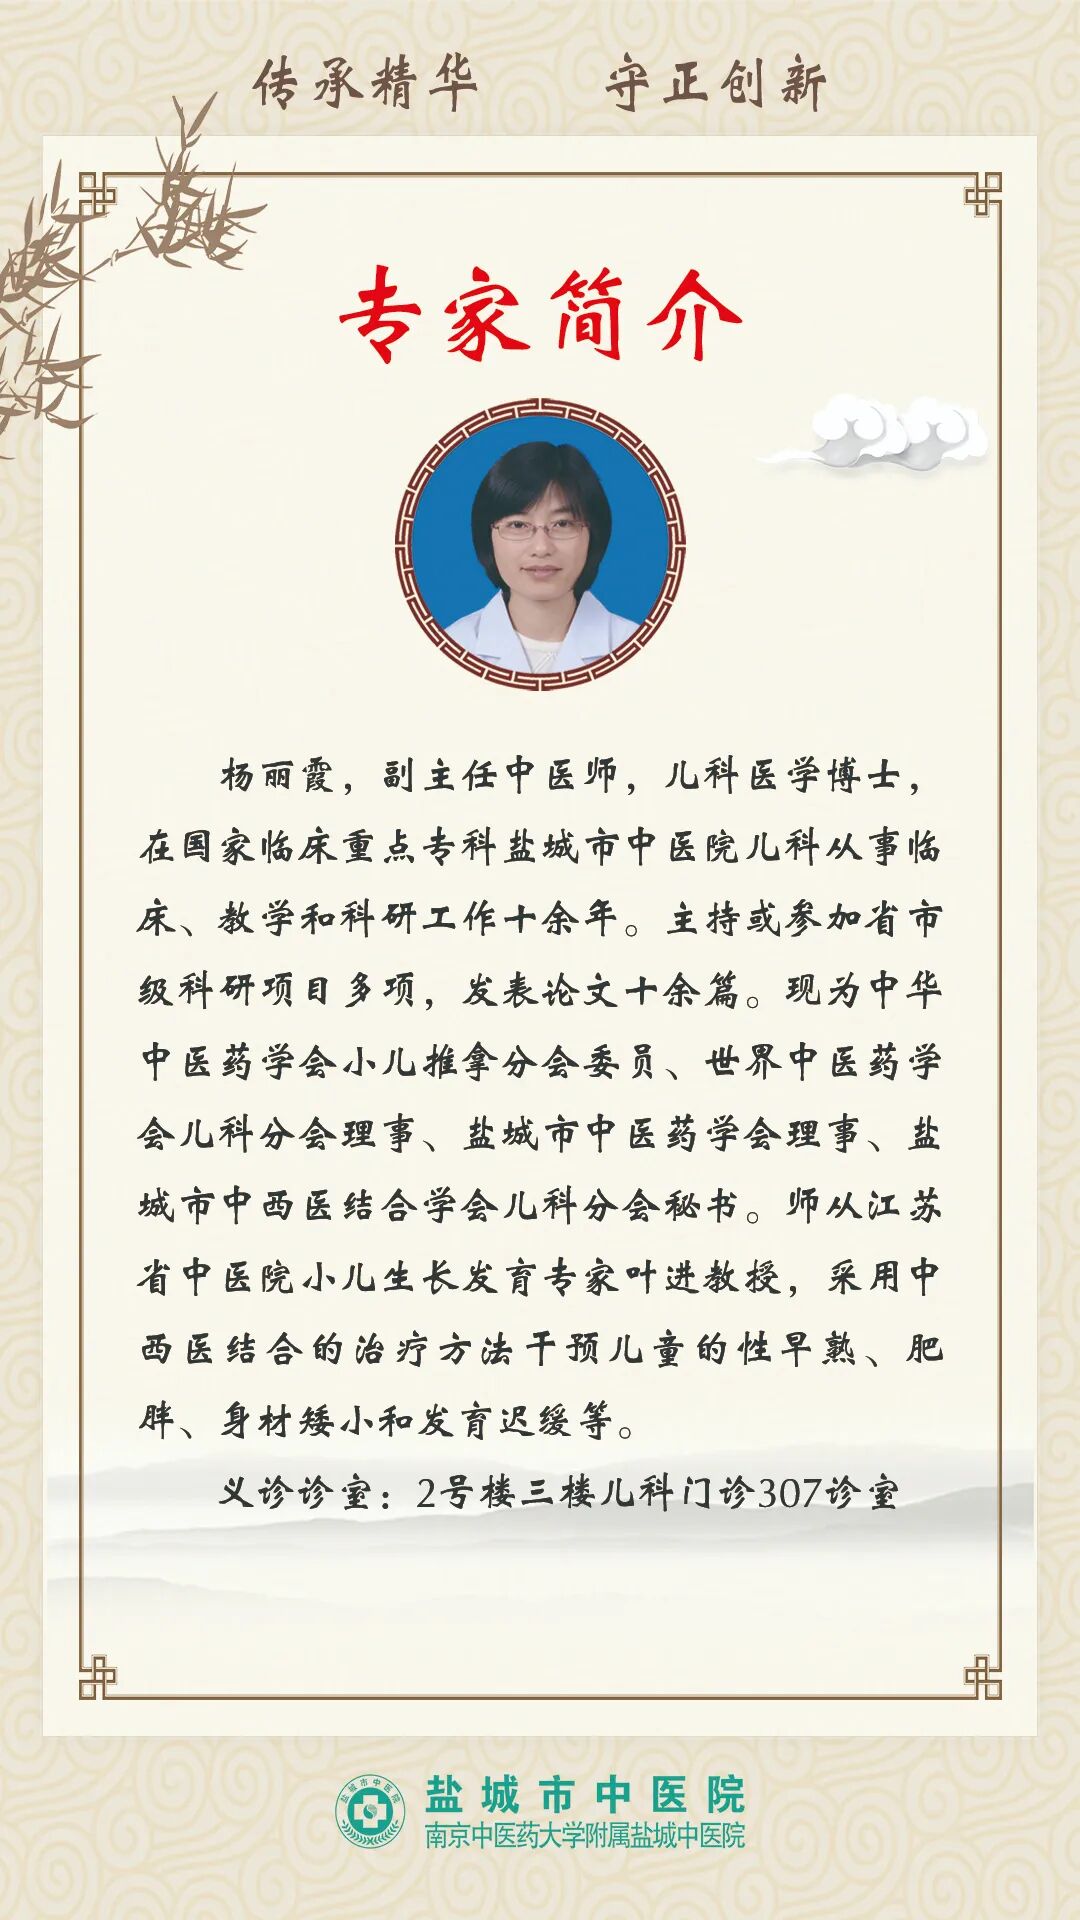 传承精华 守正创新
专家简介
杨丽霞，副主任中医师，儿科医学博士，
在国家临床重点专科盐城市中医院儿科从事临
床、教学和科研工作十余年。主持或参加省市
级科研项目多项，发表论文十余篇。现为中华
中医药学会小儿推拿分会委员、世界中医药学
会儿科分会理事、盐城市中医药学会理事、盐
城市中西医结合学会儿科分会秘书。师从江苏
省中医院小儿生长发育专家叶进教授，采用中
西医结合的治疗方法干预儿童的性早熟、肥
胖、身材矮小和发育迟缓等。
义诊诊室：2号楼三楼儿科门诊307诊室
盐城市中医院
盐城市中医院
南京中医药大学附属盐城中医院